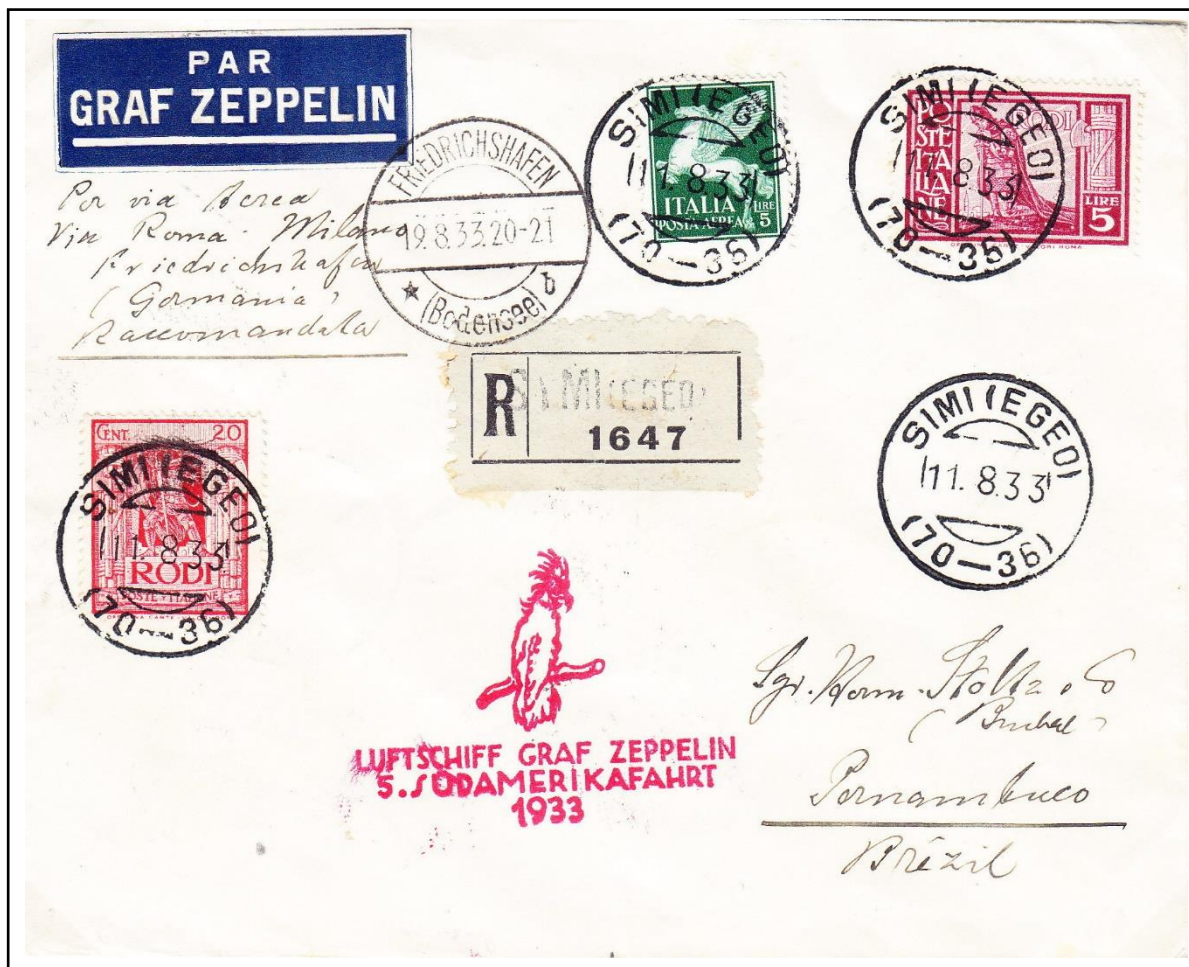 PAR
GRAF ZEPPELIN
Per via Aerea
Via Roma - Milano
Friedrichshafen
(Germania)
Raccomandata
FRIEDRICHSHAFEN
19.8.33.20-21
(Bodensee) b
SIMI (EGEO)
11.8.33
(70-36)
ITALIA LIRE
POSTA AEREA 5
SIMI (EGEO)
11.8.33
(70-36)
POSTE ITALIANE
RODI
LIRE
5
R
SIMI (EGEO)
1647
CENT. 20
SIMI (EGEO)
11.8.33
(70-36)
RODI
POSTE ITALIANE
SIMI (EGEO)
11.8.33
(70-36)
LUFTSCHIFF GRAF ZEPPELIN
5. SÜDAMERIKAFAHRT
1933
Sgr. Herm. Stoltz & Co
Pernambuco
Brézil